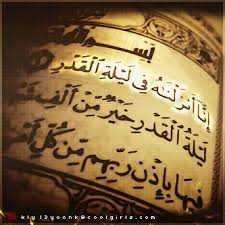 إِنَّا أَنزَلْنَهُ فِى لَيْلَةِ ٱلْقَدْرِ
لَيْلَةُ ٱلْقَدْرِ خَيْرٌ مِّنْ أَلْفِ
فِيهَا بِإِذْنِ رَبِّهِم مِّن كُلِّ
klul3yoonk@coolgirls.com